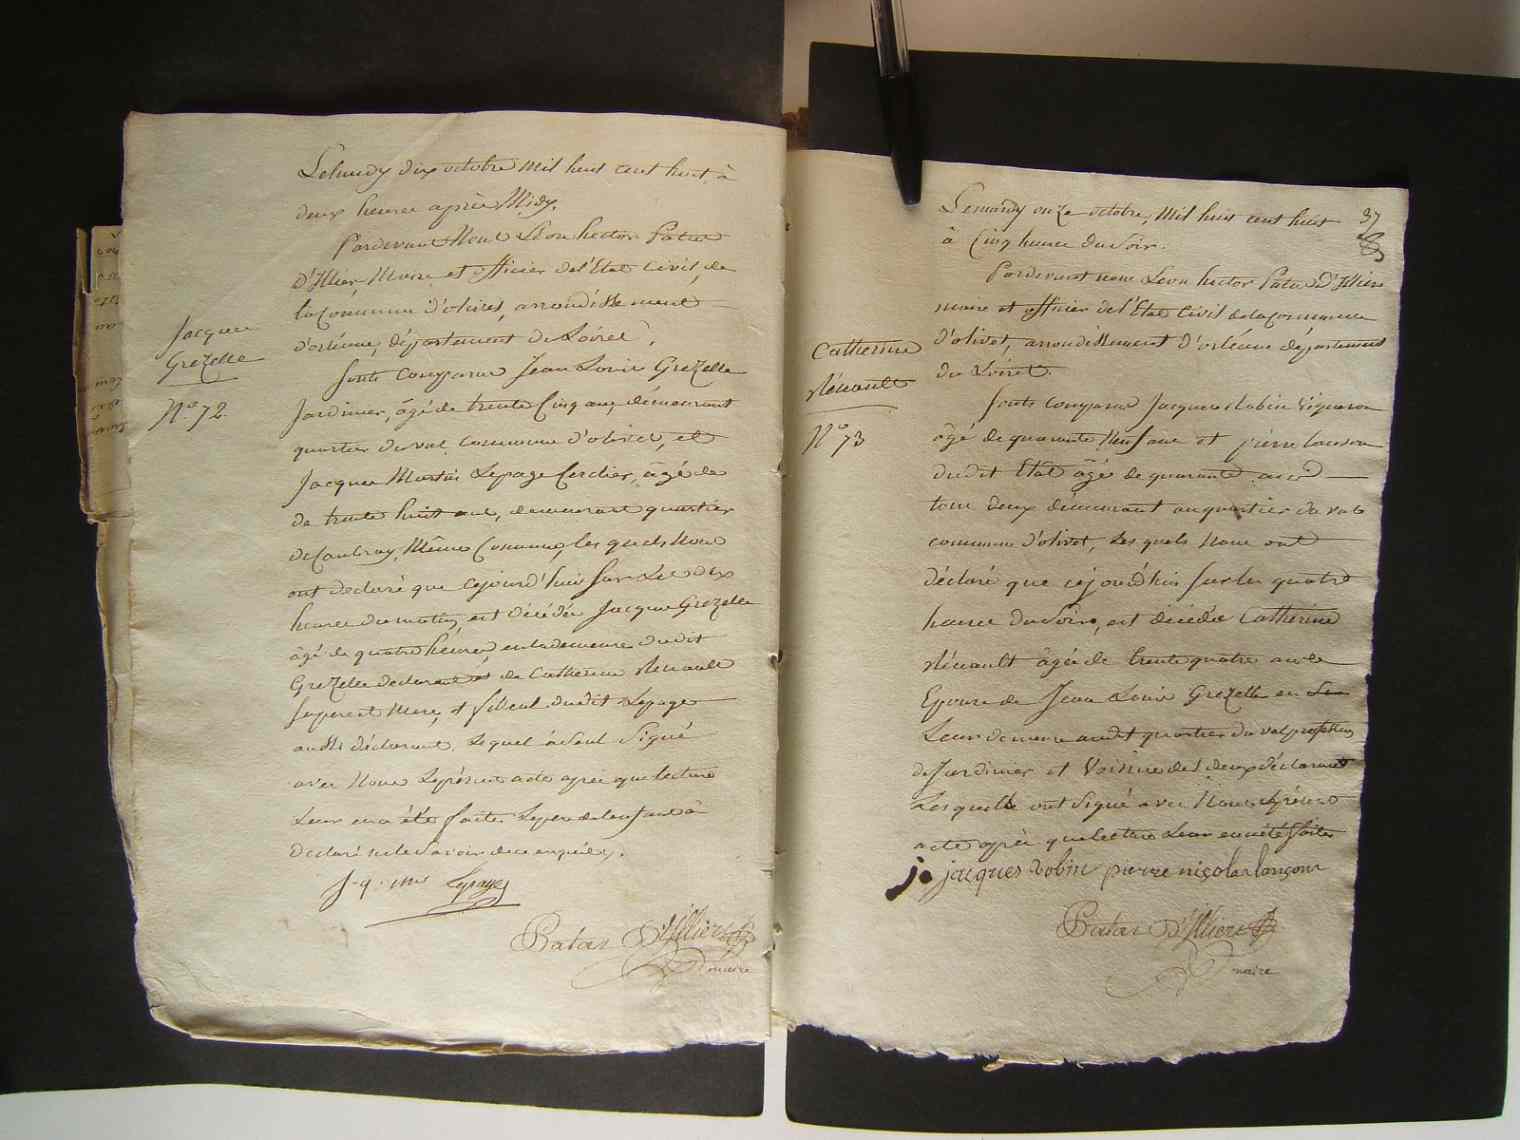 Le lundy dix octobre mil huit cent huit, à
deux heures après Midy.
Pardevant Nous Léon hector Patas
D'Illier, Maire et officier del'Etat Civil, de
la Commune d'olivet, arrondissement
d'orléans, département du Loiret,
Jacques
Grezelle
N.o 72.
sont Comparus Jean Louis Grezelle
Jardinier, âgé de trente Cinq ans, demeurant
quartier du val commune d'olivet, et
Jacques Martin Lepage Cerclier, agé de
de trente huit ans, demeurant quartier
de Caubray, Même Commune, les quels Nous
ont declaré que cejourd'hui sur Les dix
heures du matin, est décédé Jacques Grezelle
âgé de quatre heures en la demeure dudit
Grezelle declarant et de Catherine Renault
ses pere et Mere, et filleul dudit Lepage
aussi déclarant. Lequel à Seul Signé
avec Nous Leprésent acte après que lecture
Leur en a été faite. Lepere del'enfant à
declaré ne le Savoir de ce enquis.
J. q. m. Lepage
Patas D'Illiers
maire
37
Le mardy onze octobre, Mil huit cent huit
à Cinq heures du Soir.
Pardevant nous Léon hector Patas D'Illiers
maire et officier de l'Etat Civil de la Commune
d'olivet, arrondissement d'orléans département
du Loiret.
Catherine
Rénault
N.o 73
sont Comparus Jacques Robin Vigneron
âgé de quarante Neuf ans et pierre Lanson
dudit Etat âgé de quarante ans
tous deux demeurant au quartier du val
commune d'olivet, Les quels Nous ont
déclaré que cejourd'hui sur les quatre
heures du Soir, est décédée Catherine
Rénault âgée de trente quatre ans
Epouse de Jean Louis Grezelle en
Leur demeure audit quartier du val profession
de Jardinier et Voisine des deux déclarants
Lesquels ont Signé avec Nous le présent
acte après que lecture Leur en a été faite
j jacques robin pierre niçolas lançon
Patas D'Illiers
maire